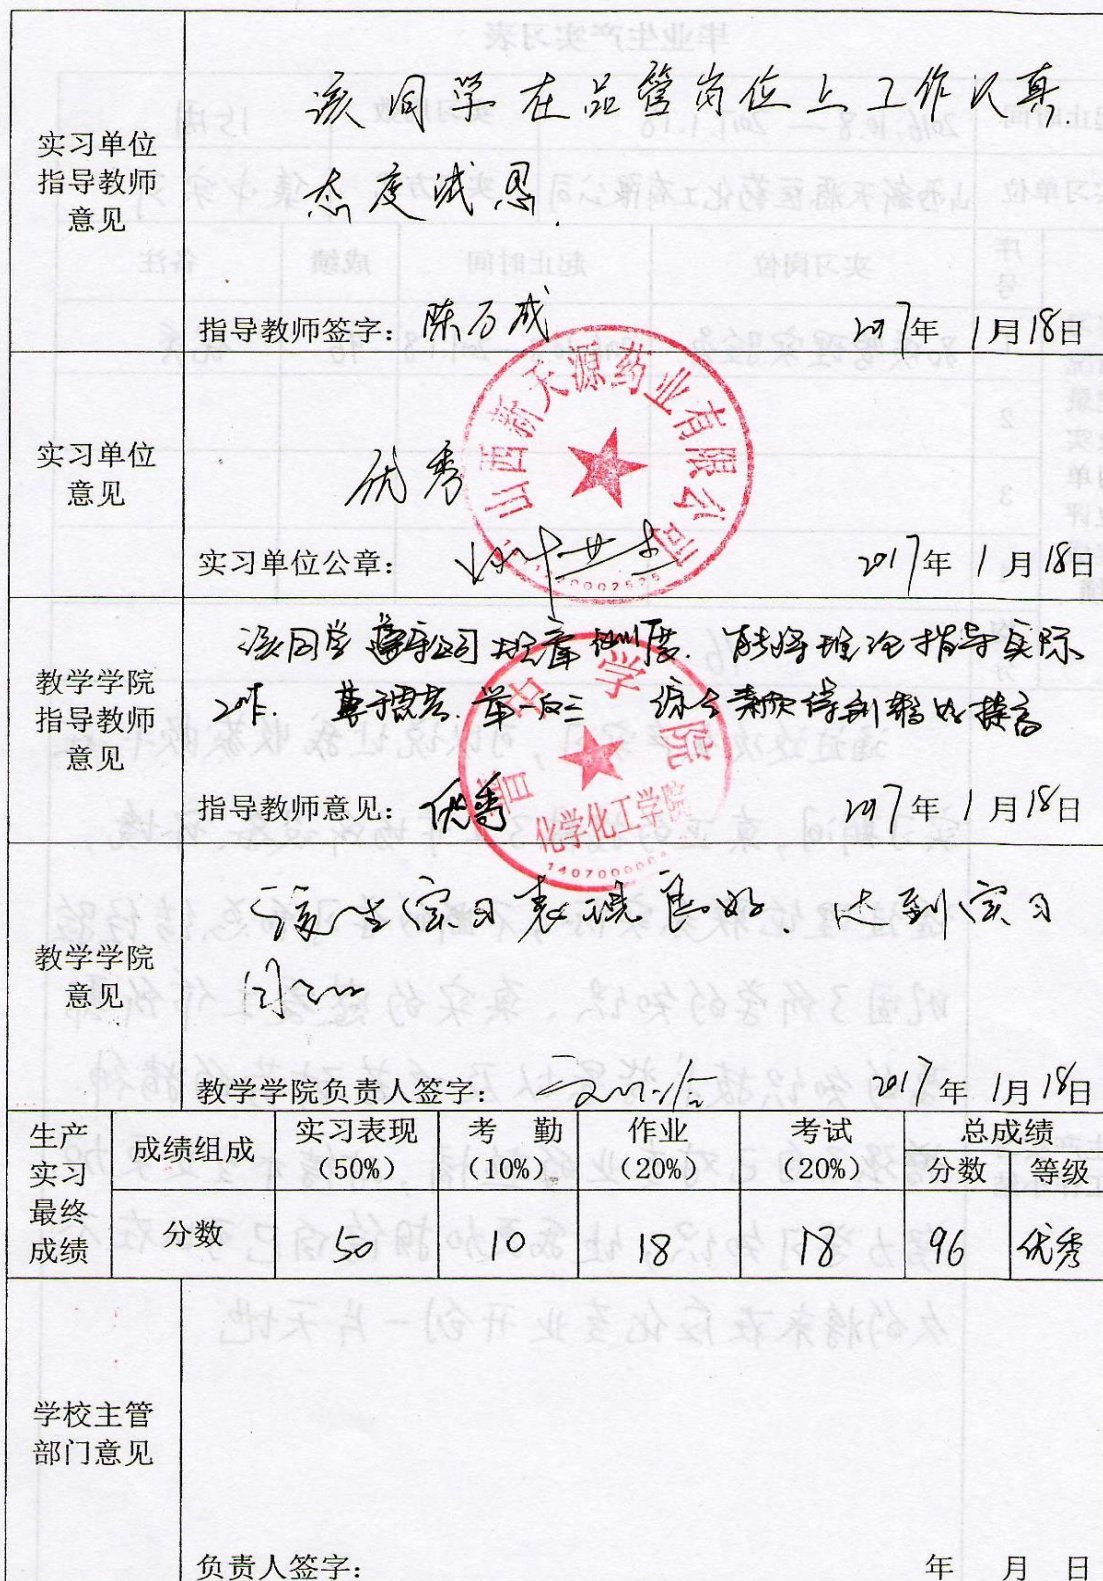 实习单位
指导教师
意见
该同学在品管岗位上工作认真.
态度诚恳.
指导教师签字：陈万成 2017年 1月18日
实习单位
意见
优秀
山西新天源药业有限公司
实习单位公章： 2017年 1月18日
教学学院
指导教师
意见
该同学遵守公司规章制度. 能将理论指导实际
工作. 善于思考. 举一反三 综合素质得到较好提高
指导教师意见：优秀 2017年 1月18日
学院
化学化工学院
教学学院
意见
该生实习表现良好. 达到实习
目的
教学学院负责人签字： 2017年 1月18日
生产
实习
最终
成绩
成绩组成 实习表现 考 勤 作业 考试 总成绩
（50%） （10%） （20%） （20%） 分数 等级
分数 50 10 18 18 96 优秀
学校主管
部门意见
负责人签字： 年 月 日